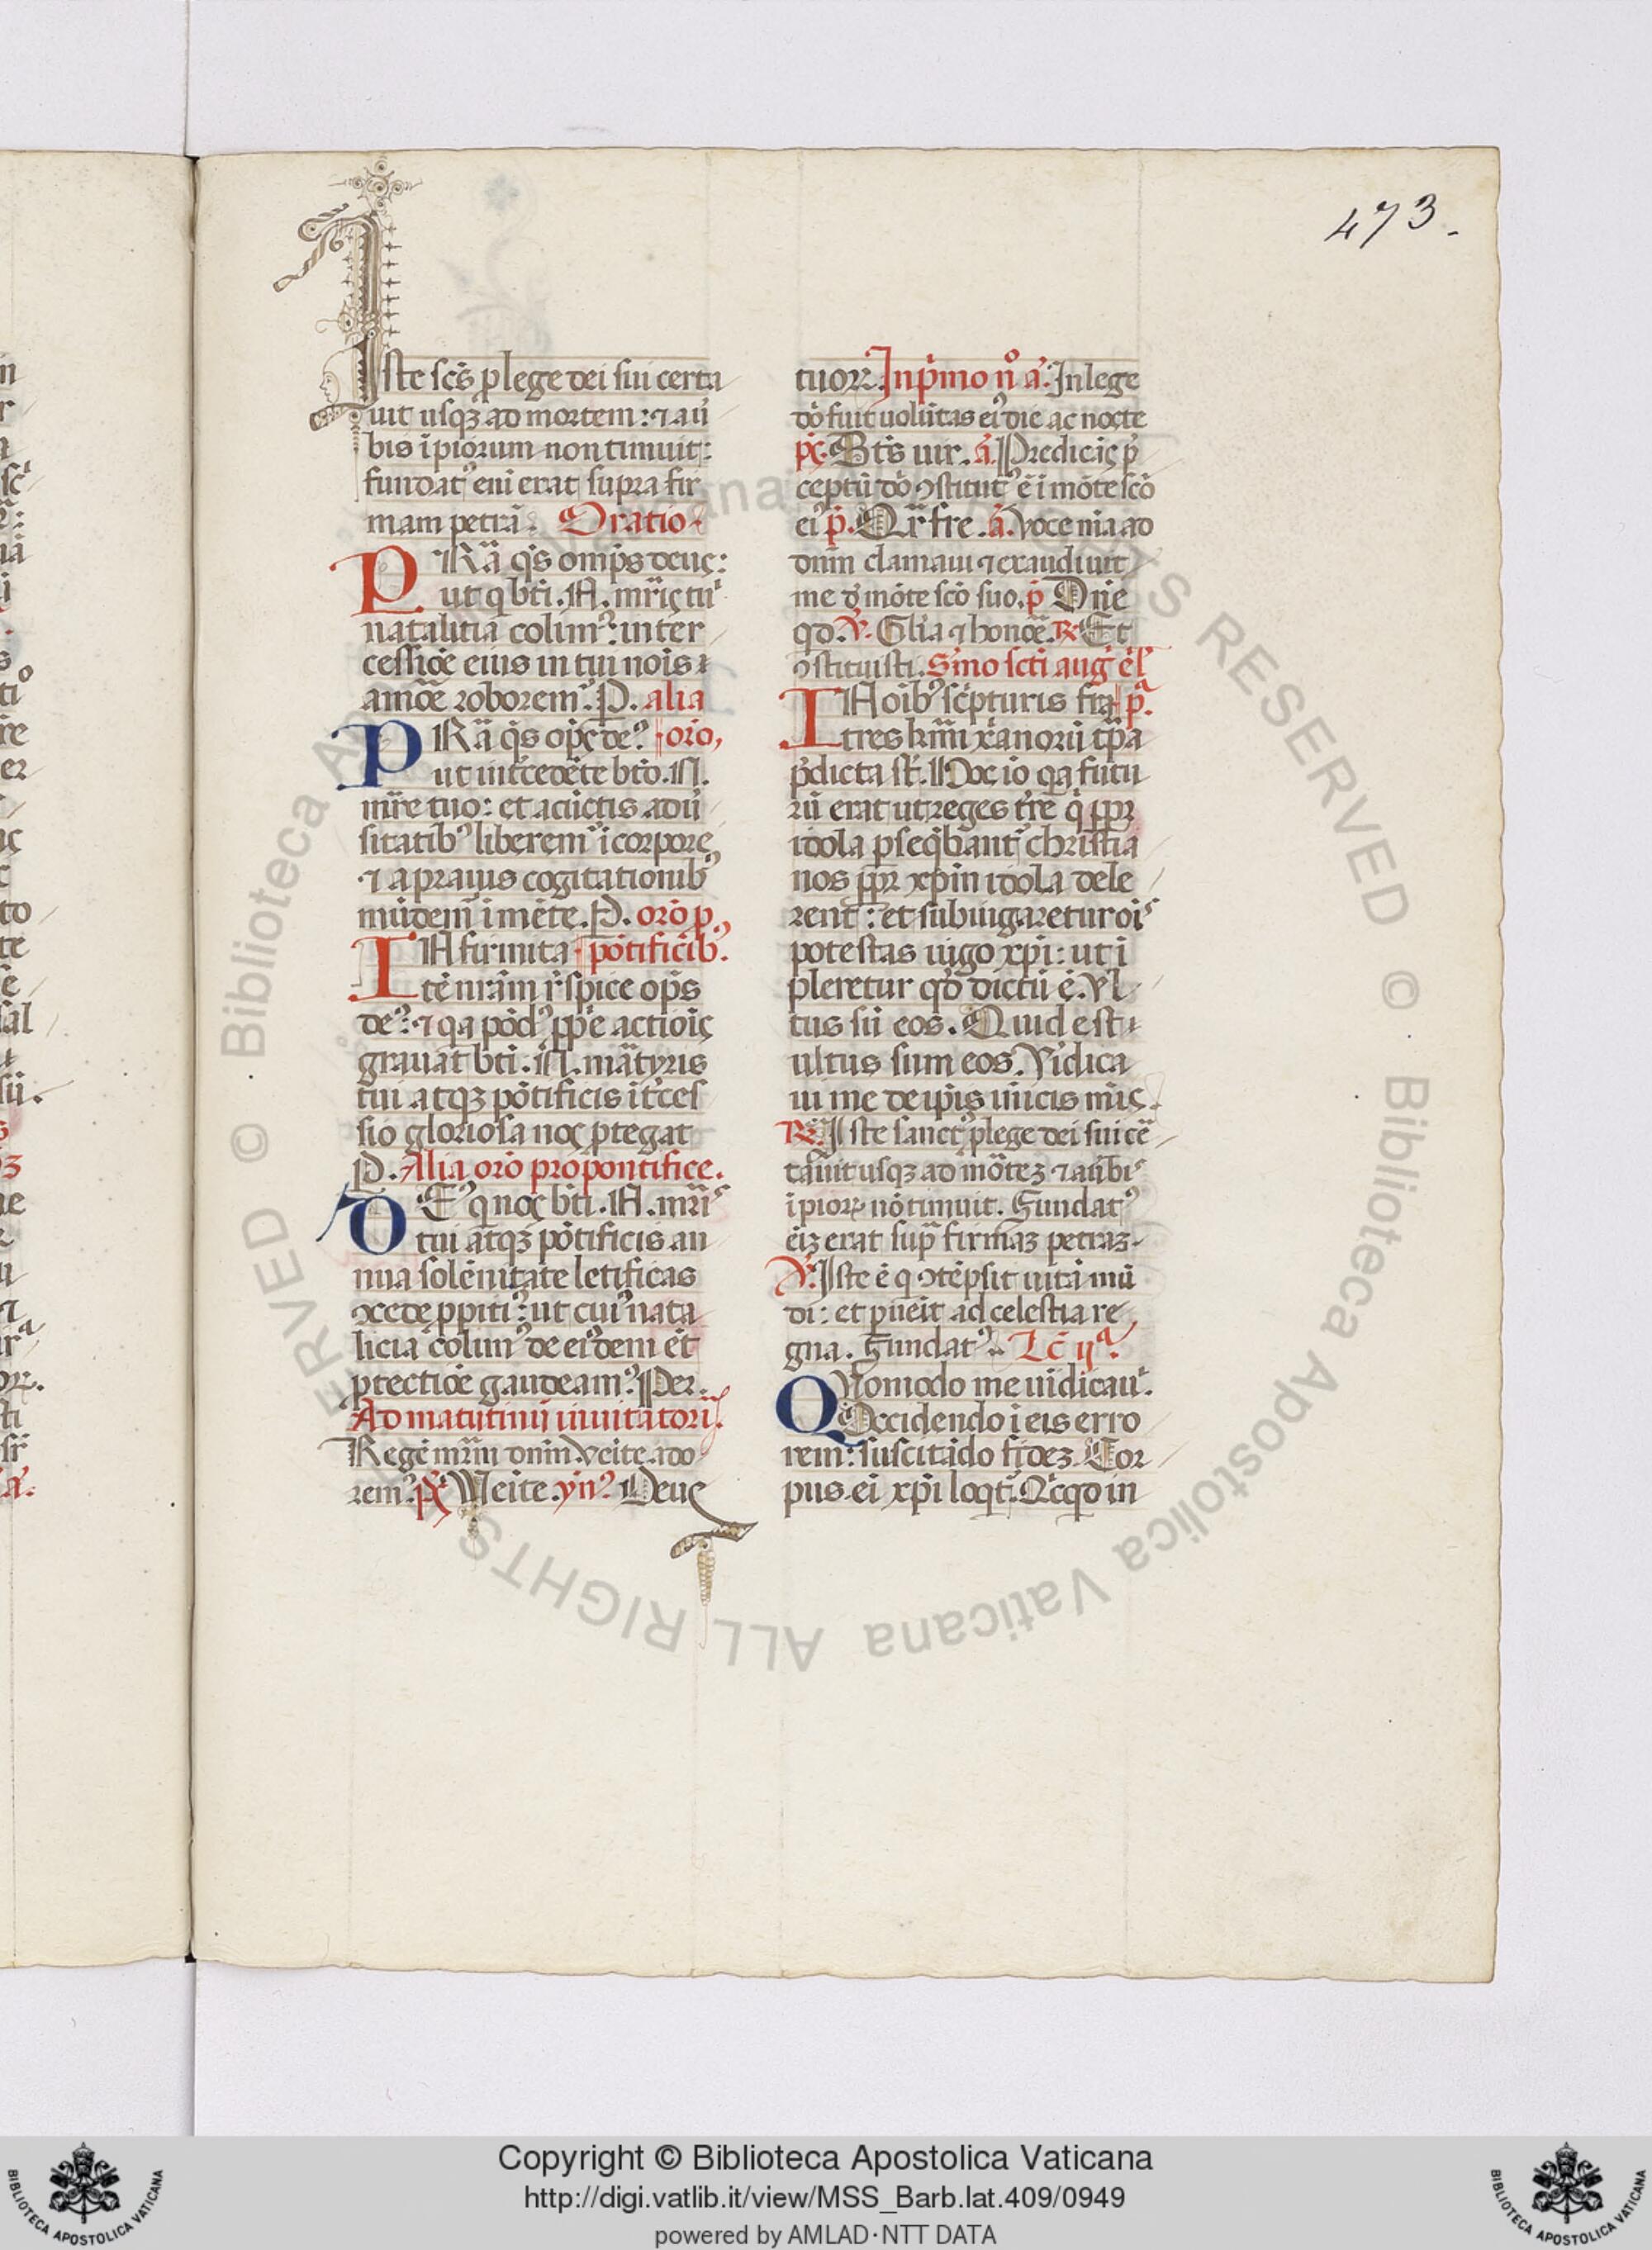 473.
Iste scs̄ p lege dei sui certa
uit usqꝫ ad mortem: ⁊ au̾
bis īpiorum non timuit:
fundat᷒ eni erat supra fir
mam petrā. Oratio
PRā qs̄ omp̄s deus:
ut q bti̾. N. mr̄is tui
natalitia colim᷒: inter
cessiōe eius in tui nois
amōe roborem᷒. P. alia
PRā qs̄ op̄s de᷒ oro̾,
ut int̾cedēte bto̾. N.
mr̄e tuo: et a cūctis adu̾
sitatib᷒ liberem᷒ ī corpore
⁊ a prauis cogitationib᷒
mūdem᷒ ī mēte. P. oro̾ p
INfirmita pōtificib᷒.
tē nrām rs̾pice op̄s
de᷒: ⁊ qa pōd᷒ ppe̾ actiois̾
grauat bti̾. N. mātyris
tui atqꝫ pōtificis īt̾ces
sio gloriosa nos ptegat
P. Alia oro̾ pro pontifice.
DE᷒ q nos bti̾. N. mr̄is
tui atqꝫ pōtificis an
nua solēnitate letificas
ↄcede ppiti᷒: ut cui᷒ nata
licia colim᷒ de ei᷒dem et̾
ptectiōe gaudeam᷒. Per.
Ad matutinū inuitatoriū
Regē mr̄m dnm̄. Veīte ado
rem᷒. ps̄ Veīte. yn᷒. Deus
tuoꝝ. In p̾mo no̾ a̾. In lege
do̾ fuit uolūtas ei᷒ die ac nocte
ps̄. Bts̄ uir. a̾. Predicās p̾
ceptū do̾ ↄstitut᷒ ē ī mōte sco̾
ei᷒ p̄. Qr̄ fre. a̾. Voce mea ad
dnm̄ clamaui ⁊ exaudiuit
me d̾ mōte sco̾ suo. p̄ Dn̄e
qd. ℣. Glīa ⁊ honoē. ℟ Et
ↄstituisti. Sm̾o scti̾ aug̾ ep̄i
IN oib᷒ sc̾pturis fra p̾ᵃ.
tres kmī xr̾anorū tpa̾
p̾dicta st̄. Hoc io̾ qa futu
rū erat ut reges tr̾e q̾ ppr̾
idola pseqbant᷒ christia
nos ppr̾ xpm̄ idola dele
rent: et subiugaretur ois̾
potestas iugo xpi̾: ut ī
pleretur qd̾ dictū ē. Vl
tus sū eos. Quid est
ultus sum eos. Vīdica
ui me de ipis̾ inīcis mis̾.
℟. Iste sanct᷒ p lege dei sui cē
tauit usqꝫ ad mōteꝫ ⁊ au̾bis
īpioꝝ nō timuit. Fundat᷒
eīꝫ erat sup̾ firmaꝫ petraꝫ.
℣. Iste ē q ↄtēpsit uitā mū
di: et pueīt ad celestia re
gna. Fundat᷒.. Lc̄ iiᵃ.
Quomodo me uīdicaui.
Occidendo ī eis erro
rem: suscitādo fideꝫ. Cor
pus ei᷒ xpi̾ loqt᷒. Qcqd in
Copyright © Biblioteca Apostolica Vaticana
http://digi.vatlib.it/view/MSS_Barb.lat.409/0949
powered by AMLAD·NTT DATA
BIBLIOTECA APOSTOLICA VATICANA
BIBLIOTECA APOSTOLICA VATICANA
© Biblioteca Apostolica Vaticana ALL RIGHTS RESERVED